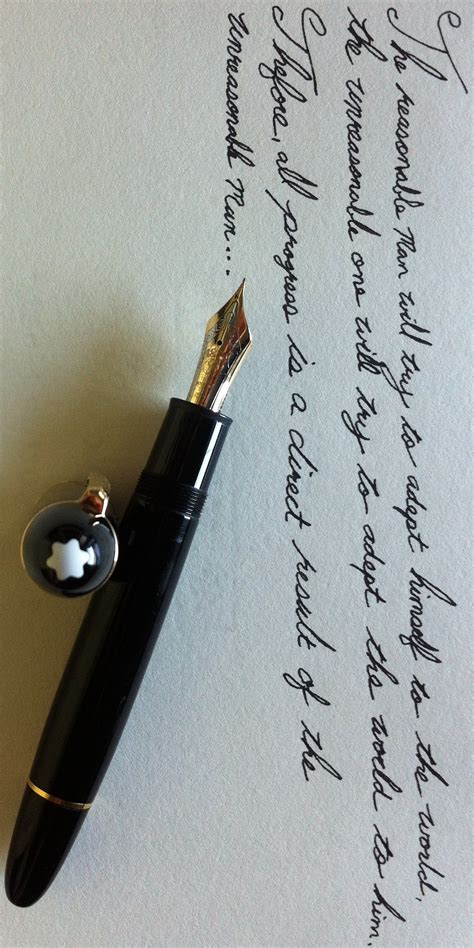 The reasonable man will try to adept himself to the world,
the unreasonable one will try to adept the world to him.
Thefore, all progress is a direct result of the
unreasonable man...